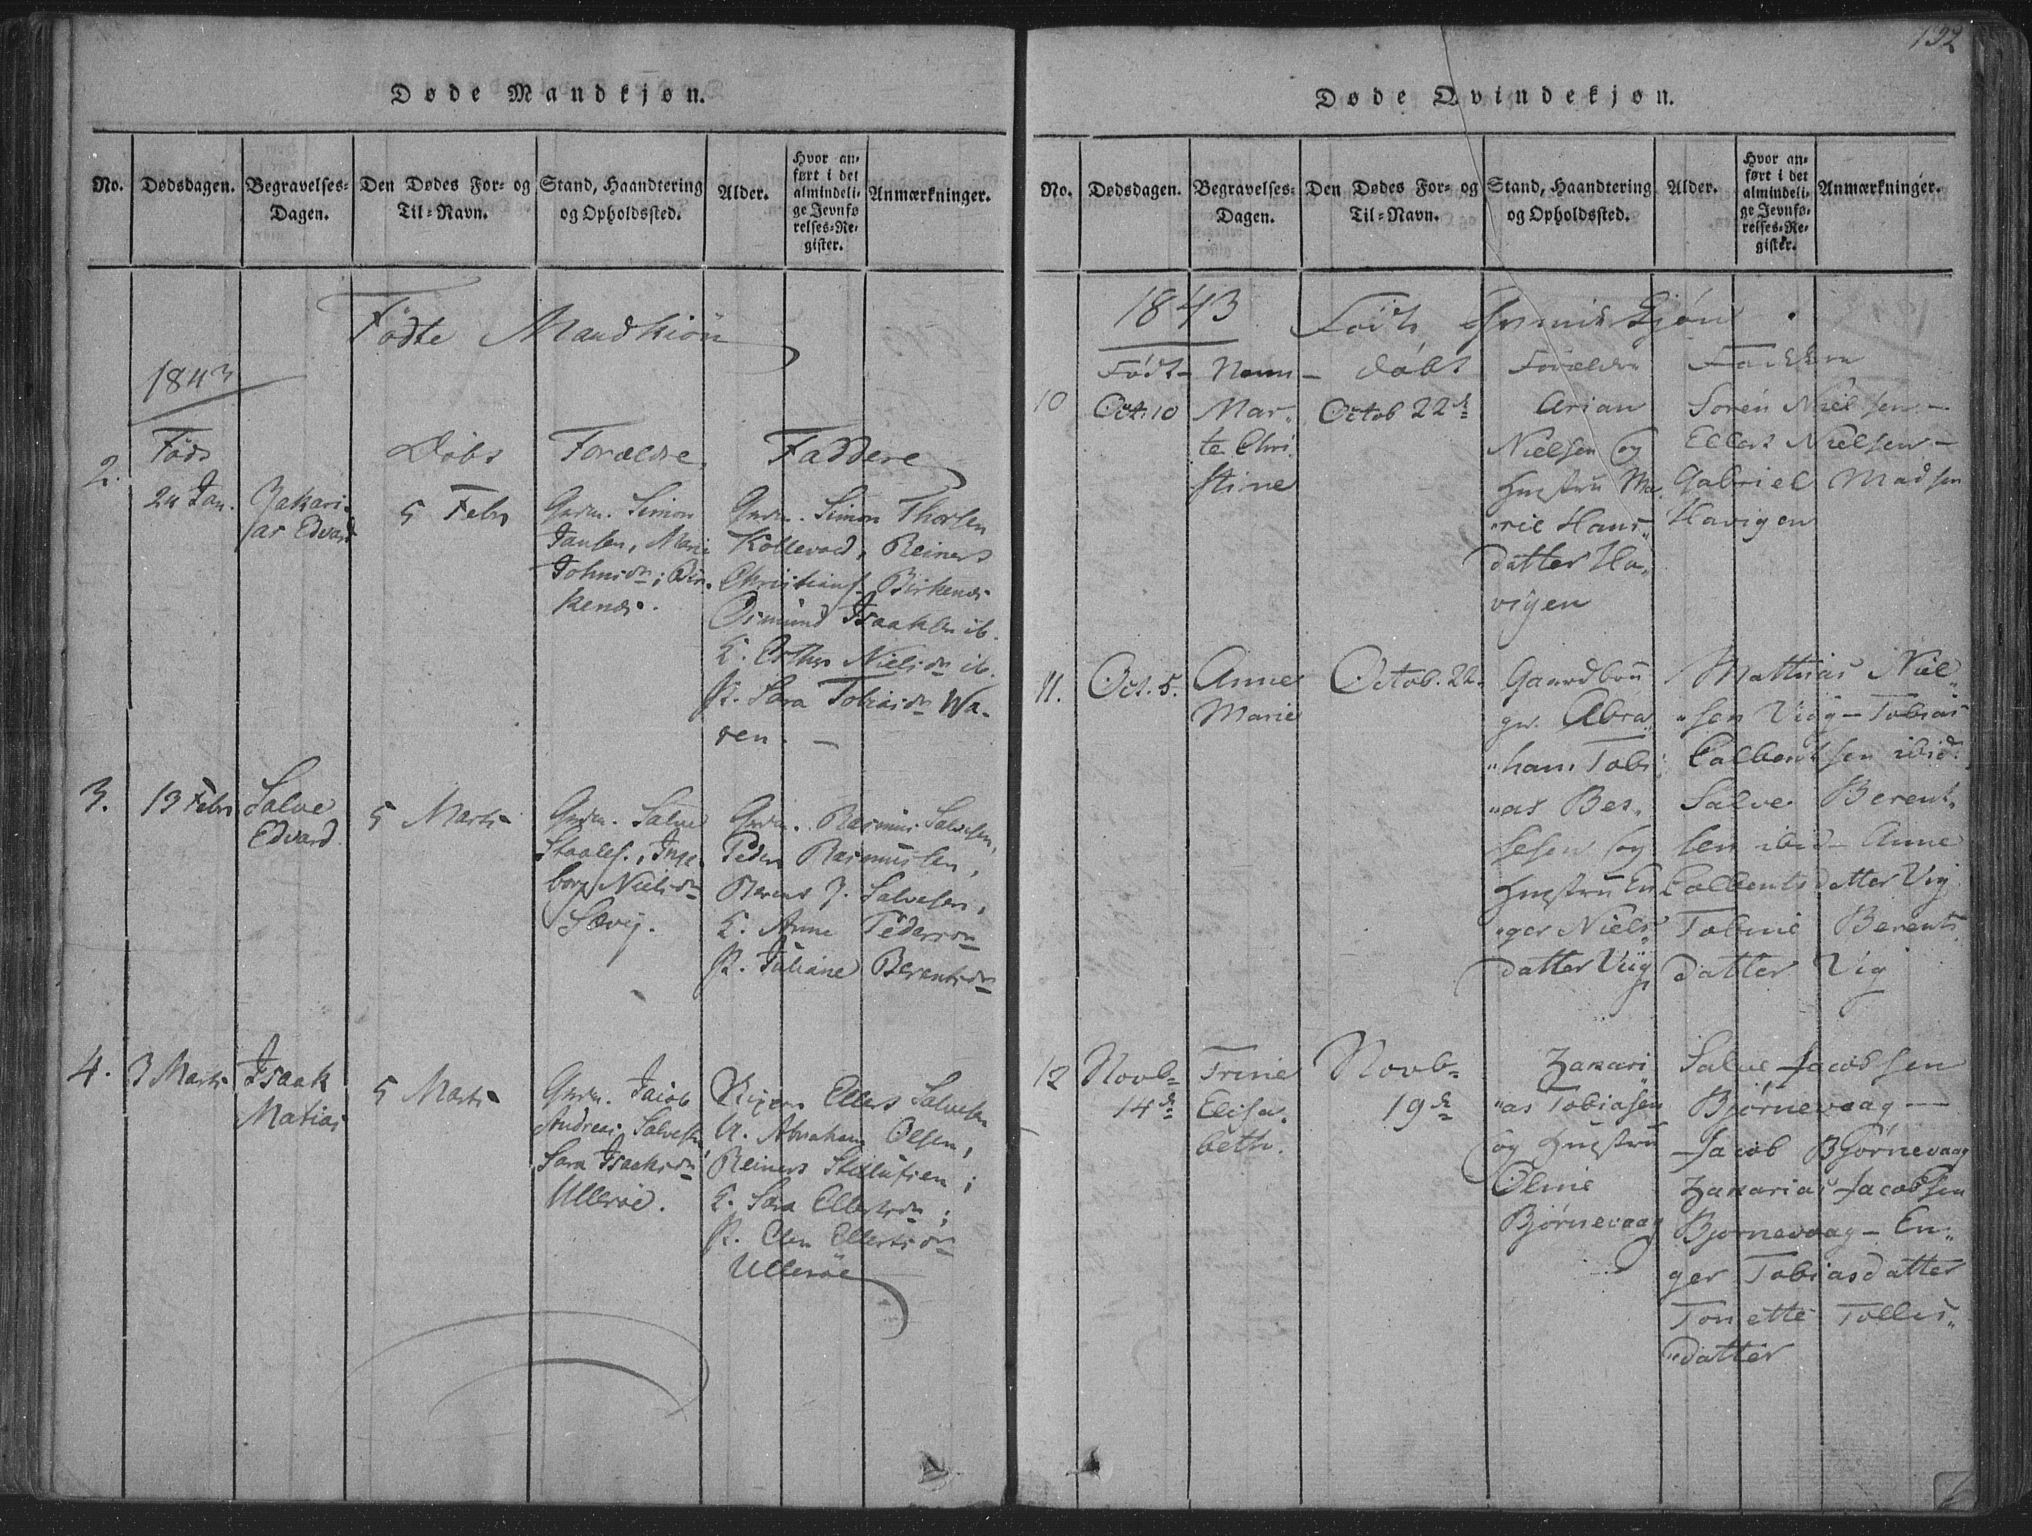 192
Døde Mandkjøn.
No.
Dødsdagen.
Begravelses-
Dagen.
Den Dødes For- og
Til-Navn.
Stand, Haandtering
og Opholdssted.
Alder.
Hvor an-
ført i det
almindeli-
ge Jevnfø
relses-Re-
gister.
Anmærkninger.
Födte Mandkiön
1843
Föds
Döbs
Forældre
Faddere
2.
24 Jan.
Zakari-
sar Edvard
5 Febr
Grdm. Simon
Jansen, Marie
Johnsdr; Bir-
kenæs.
Grdm. Simon Thorsen
Kollevold, Reiners
Christians. Birkenæs
Osmund Isaaksen ib.
K. Esther Nielsdr ib.
P. Sara Tobiasdr Wa-
ren. —
3.
13 Febr
Salve
Edvard
5 Marts
Grdm. Salve
Staales., Inge
borg Nielsdr
Sævig.
Grdm. Rasmus Salvesen,
Peder Rasmussen,
Berent J. Salvesen,
K. Anne Pedersdr
P. Juliane Berentsdr
4.
3 Marts
Isaak
Matias
5 Marts
Grdm. Jacob
Andreas Salvesen
Sara Isaacksdr
Ullerøe.
Ellert Salvesen
U. Abraham Olsen,
Reiners Stillufsen;
K. Sara Ellertsdr;
P. Elen Ellertsdr
Ullerøe
Døde Qvindekjøn.
No.
Dødsdagen.
Begravelses-
Dagen.
Den Dødes For- og
Til-Navn.
Stand, Haandtering
og Opholdssted.
Alder.
Hvor an-
ført i det
almindeli-
ge Jevnfø-
relses-Re-
gister.
Anmærkninger.
1843 Födte Qvindekjön
Födt- Navn- döbt Forældre Faddere
10
Oct. 10
Mar-
te Chri
stine
Octob 22de
Arian
Nielsen og
Hustru Ma-
"rie Hans"
datter Ha"
vigen
Soren Nielsen —
Ellert Nielsen —
Gabriel Madsen
Havigen
11.
Oct. 5.
Anne
Marie
Octob. 22.
Gaardbru
gr. Abra"
"ham Tobi"
"as Ber"
sesen og
Hustru En
"ger Niels"
datter Viig
Mathias Niel"
"sen Viig — Tobias
Calbentsen ibid.
Salve Berent"
sen ibid — Anne
Calbentsdatter Vig
Tobine Berents
datter Vig
12
Novb-
14de
Trine
Elisa"
beth.
Novb-
19de
Zakari"
"as Tobiasen
og Hustru
Oline
Bjørnevaag
Salve Jacobsen
Bjørnevaag —
Jacob Bjørnevaag
Zakarias Jacobsen
Bjørnevaag — En"
ger Tobiasdatter
Tonette Tollis"
"datter